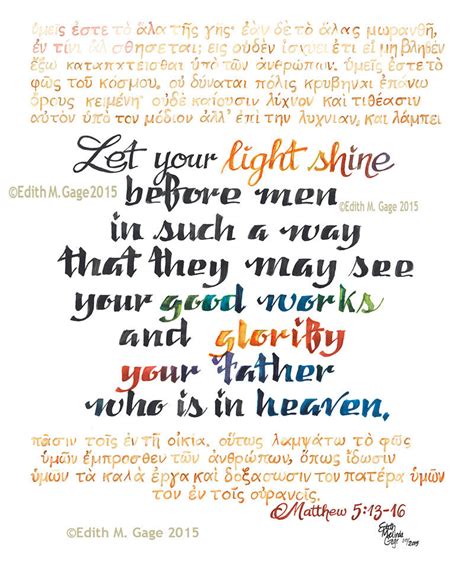 ὑμεῖς ἐστε τὸ ἅλα τῆς γῆς· ἐὰν δὲ τὸ ἅλας μωρανθῆ,
ἐν τίνι ἁλισθήσεται; εἰς οὐδὲν ἰσχύει ἔτι εἰ μὴ βληθὲν
ἔξω καταπατεῖσθαι ὑπὸ τῶν ἀνθρώπων. ὑμεῖς ἐστε τὸ
φῶς τοῦ κόσμου. οὐ δύναται πόλις κρυβῆναι ἐπάνω
ὄρους κειμένη· οὐδὲ καίουσιν λύχνον καὶ τιθέασιν
αυτὸν ὑπὸ τον μόδιον ἀλλ’ ἐπὶ την λυχνιαν, καὶ λάμπει
Let your light shine
©Edith M. Gage 2015
before men
©Edith M. Gage 2015
in such a way
that they may see
your good works
and glorify
your father
who is in heaven.
πᾶσιν τοῖς ἐν τῆ οἰκία. οὕτως λαμψάτω τὸ φῶς
ὑμῶν ἔμπροσθεν τῶν ἀνθρώπων, ὅπως ἴδωσιν
ὑμῶν τὰ καλὰ ἔργα καὶ δοξασωσιν τον πατέρα ὑμῶν
τον ἐν τοῖς οὐρανοῖς.
Matthew 5:13-16
©Edith M. Gage 2015
Edith
Melinda
Gage